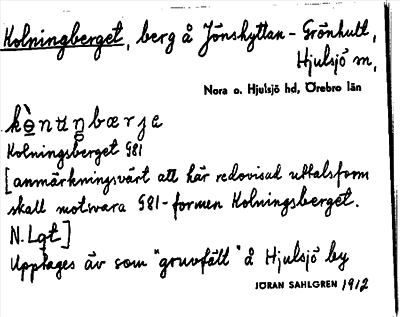 Kolningberget, berg å Jönshyttan - Grönhult,
Hjulsjö sn,
Nora o. Hjulsjö hd, Örebro län
Kolningsberget GS1
[anmärkningsvärt att här redovisad uttalsform
skall motsvara GS1-formen Kolningsberget.
N. Lgt]
Upptages äv som "gruvfält" å Hjulsjö by
JÖRAN SAHLGREN 1912